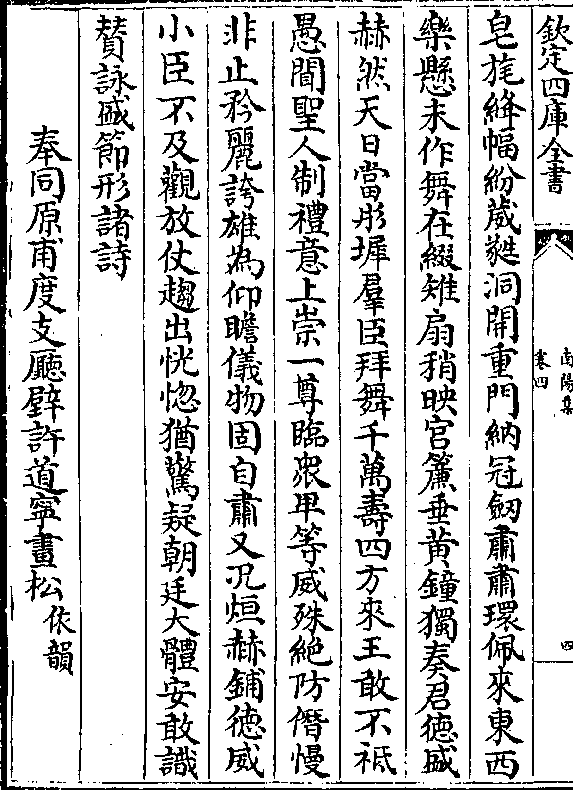 欽定四庫全書
南陽集
卷四
四
皂旄絳幅紛葳蕤洞開重門納冠劒肅肅環佩來東西
樂懸未作舞在綴雉扇稍映宮簾垂黄鐘獨奏君德盛
赫然天日當彤墀羣臣拜舞千萬壽四方來王敢不祗
愚聞聖人制禮意上崇一尊臨衆卑等威殊絶防僭慢
非止矜麗誇雄為仰瞻儀物固自肅又况烜赫鋪德威
小臣不及觀放仗趨出恍惚猶驚疑朝廷大體安敢識
賛詠盛節形諸詩
奉同原甫度支廳壁許道寧畫松依韻